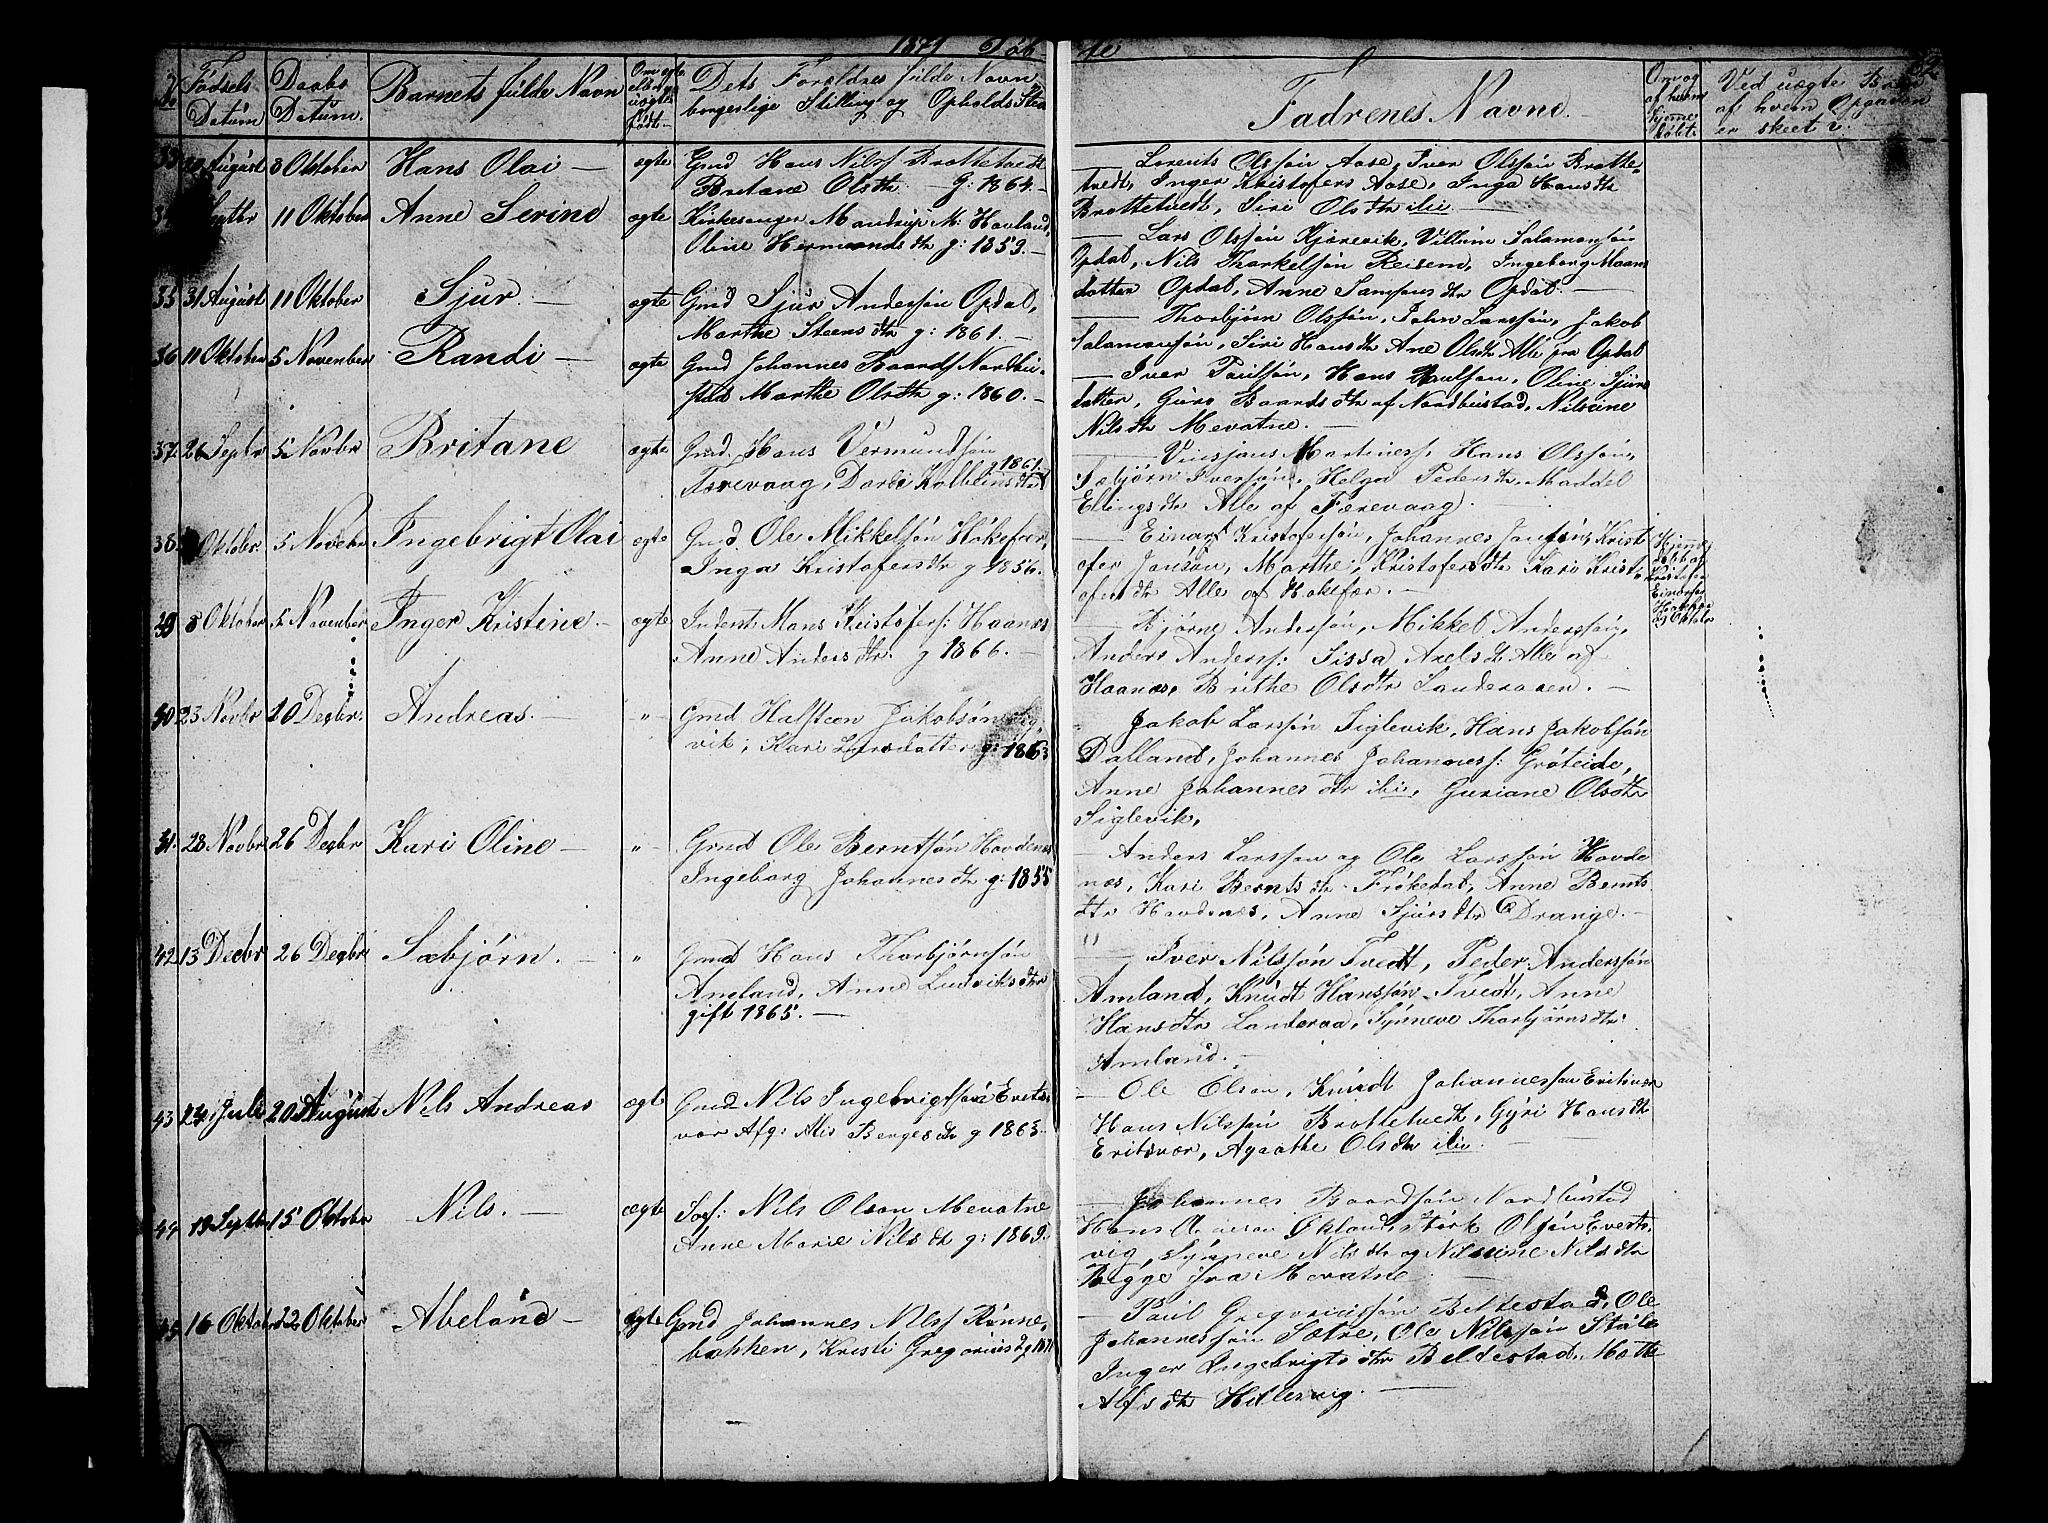 1871 Døb
te
62
Fødsels
Datum
Daabs
Datum.
Barnets fulde Navn
Om ægte
eller
uægte
født
Dets Forældres fulde Navn
borgerlige Stilling og Opholds Sted
Fadrenes Navne.
Om og
af hvem
hjemme
døbt.
Ved uægte Børn
af hvem Opgaven
er skeet?
August 8 Oktober Hans Olai — ægte Gmd Hans Nilss Brottetvedt
Britane Olsdtr. — g: 1864. —
— Lorents Olssøn Aase, Iver Olssøn Brotte-
tvedt, Inger Kristofers Aase, Inga Hansdtr
Brottetvedt, Siri Olsdtr ibi —
Septbr 11 Oktober Anne Serine ægte Kirkesanger Mandrup M: Hovland,
Oline Hermundsdtr g: 1859. —
— Lars Olssøn Kjærevik, Villum Salamonsøn
Opdal, Nils Thorkelsøn Reisem, Ingeborg Maans
datter Opdal, Anne Samsonsdtr Opdal. —
35 31 August 11 Oktober Sjur. — ægte Gmd Sjur Anderssøn Opdal,
Marthe Steensdtr g: 1861. —
— Thorbjørn Olssøn, John Larssøn, Jakob
Salamonsøn, Siri Hansdtr Ane Olsdtr Alle fra Opdal
36 11 Oktober 5 November Randi — ægte Gmd Johannes Baards Nordbu-
stad Marthe Olsdtr g: 1860. —
— Iver Paulsøn, Hans Paulsøn, Oline Sjurs
datter, Guro Baardsdtr af Nordbustad, Nilsine
Nilsdtr Mevatne. —
37: 26 Septbr 5 Novbr Britane ægte Gmd. Hans Vermundsøn
Færevaag, Dordi Kolbeinsdtr g 1861.
— Vinsjans Martiness, Hans Olssøn,
Sæbjørn Iversøn, Helga Pedersdtr, Maddel
Ellingsdtr Alle af Færevaag.
38: Oktober 5 Novebr Ingebrigt Olai ægte Gmd. Ole Mikkelsøn Høkefær,
Inga Kristofersdtr g 1856. —
— Einar Kristofersøn, Johannes Jansøn, Krist
ofer Jansøn, Marthe Kristofersdtr Kari Krist-
ofersdtr Alle af Hokefær. —
Hjemme
døbt af
Kristofer
Einarsen
Oktobr
39 8 Oktober 5 November Inger Kristine. — ægte Inderst Mons Kristofers: Haanæs
Anne Andersdtr. g 1866. —
— Bjørne Anderssøn, Mikkel Anderssøn,
Anders Anderss: Sissa Axelsdtr Alle af
Haanæs, Brithe Olsdtr Landeraaen. —
40 23 Novbr 10 Decbr. Andreas. — „ Gmd Halsteen Jakobsøn Sigle
vik, Kari Larsdatter g: 1863
Jakob Larssøn Siglevik, Hans Jakobsøn
Dalland, Johannes Johanness: Grøteide,
Anne Johannesdtr ibi, Guriane Olsdtr
Siglevik.
41: 28 Novbr 26 Decbr Kari Oline — „ Gmd Ole Berntsøn Hovdenæs
Ingeborg Johannesdtr g: 1855
— Anders Larssøn og Ole Larssøn Hovde
næs, Kari Berntsdtr Frøkedal, Anne Bernts
dtr Hovdenæs, Anne Sjursdtr Drange. —
42. 13 Decbr 26 Decbr Sæbjørn. — „ Gmd Hans Thorbjørnsøn
Amland, Anne Ludviksdtr
gift 1865. —
„ — Iver Nilssøn Tvedt, Peder Anderssøn
Amland, Knudt Hanssøn Tvedt, Anne
Hansdtr Landeraa, Synneve Thorbjørnsdtr
Amland. —
43 24 Juli 20 August Nils Andreas ægte Gmd Nils Ingebrigtsøn Erits-
vær Afg: Alis Bergesdtr g 1863.
— Ole Olsen, Knudt Johannessøn Eritsvær
Hans Nilssøn Brottetvedt, Gyri Hansdtr
Eritsvær, Agaathe Olsdtr ibi.
44 19 Septbr 15 Oktober Nils. — ægte Nils Olson Mevatne
Anne Marie Nilsdtr g: 1869.
— Johannes Baardsøn Nordbustad
Hans Økland, Størk Olsøn Everts-
vig, Synneve Nilsdtr og Nilsine Nilsdtr
Begge fra Mevatne
45 16 Oktober 22 Oktober Abelone — ægte Gmd Johannes Nilss Rønne-
bakken, Kristi Gregorius dtr g 1871
— Paul Gregoriussøn Beltestad, Ole
Johannessøn Sætre, Ole Nilssøn Støle
Inger Ingebrigtsdtr Beldestad, Marthe
Alfsdtr Hillesvig. —